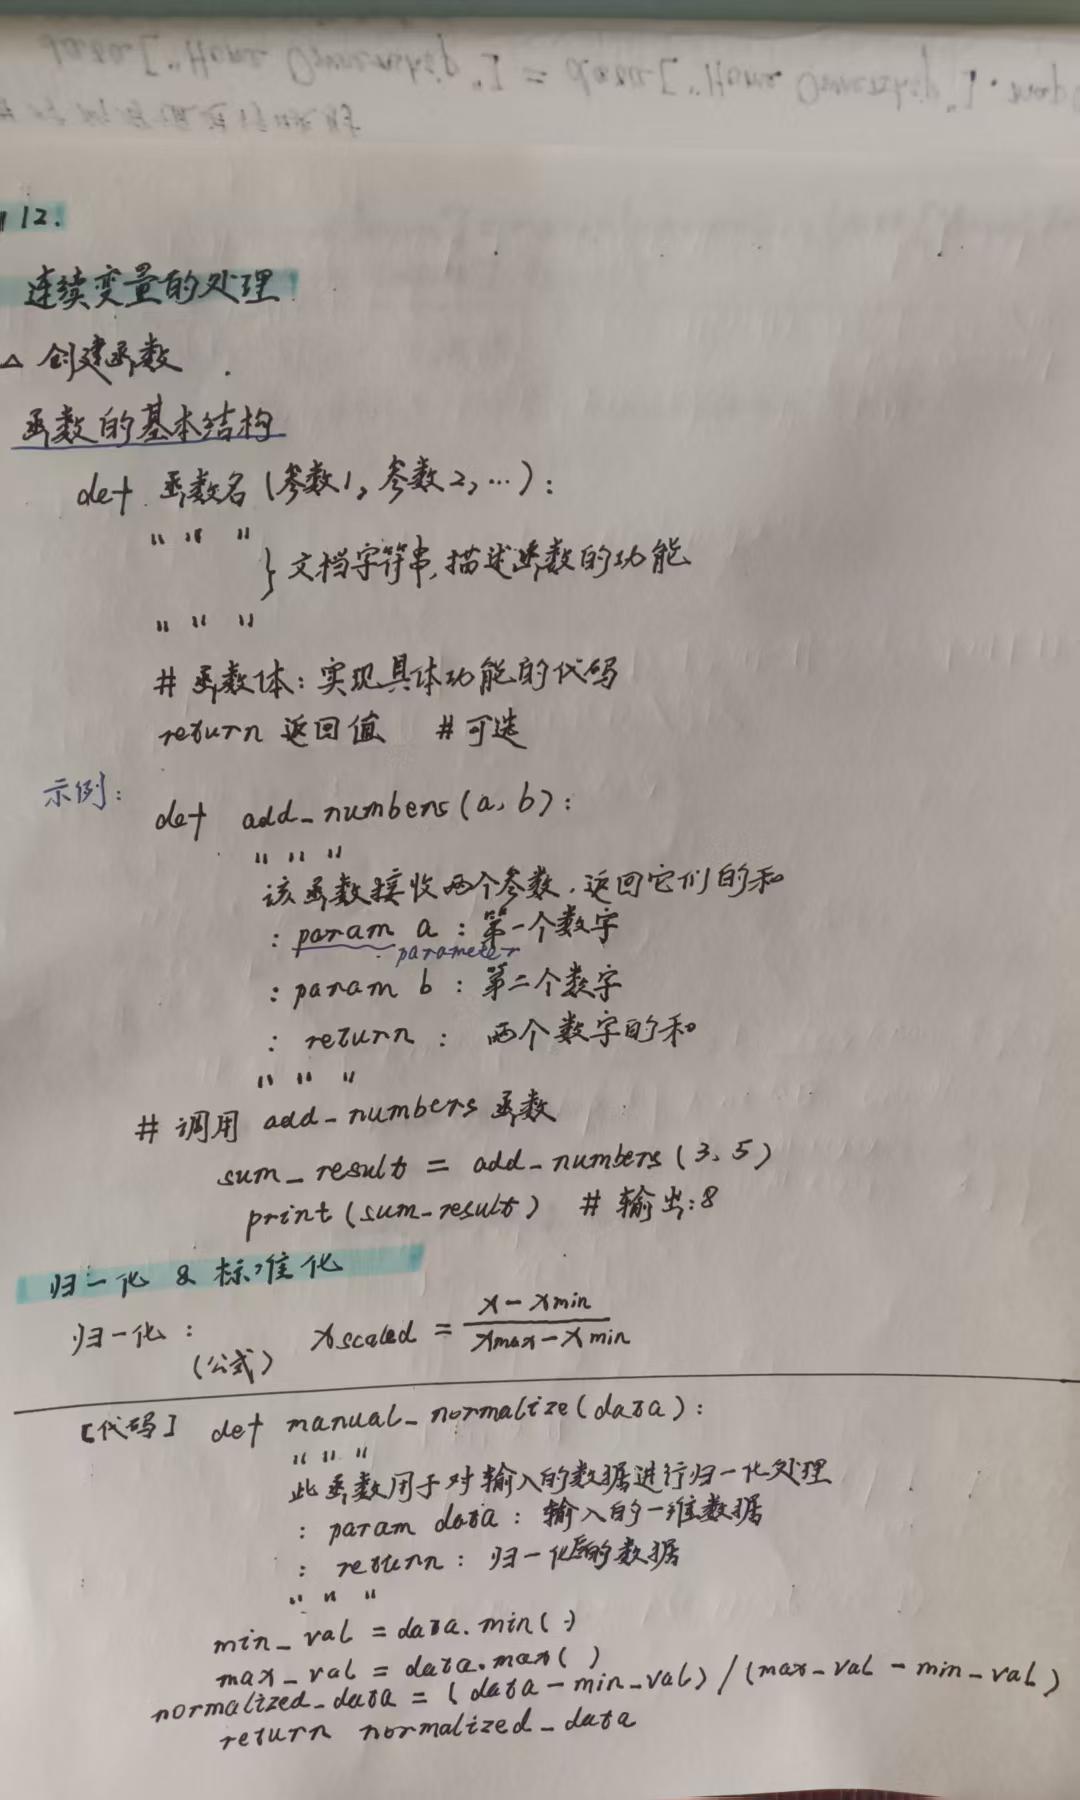 12.
连续变量的处理
△ 创建函数
函数的基本结构
def 函数名(参数1, 参数2, …):
" " "
} 文档字符串,描述函数的功能
" " "
# 函数体: 实现具体功能的代码
return 返回值 # 可选
示例:
def add_numbers(a, b):
" " "
该函数接收两个参数,返回它们的和
: param a : 第一个数字
parameter
: param b : 第二个数字
: return : 两个数字的和
" " "
# 调用 add_numbers 函数
sum_result = add_numbers(3, 5)
print(sum_result) # 输出:8
归一化 & 标准化
归一化: xscaled = x - xmin / xmax - xmin
(公式)
[代码] def manual_normalize(data):
" " "
此函数用于对输入的数据进行归一化处理
: param data: 输入的一维数据
: return: 归一化后的数据
" " "
min_val = data.min()
max_val = data.max()
normalized_data = (data - min_val) / (max_val - min_val)
return normalized_data